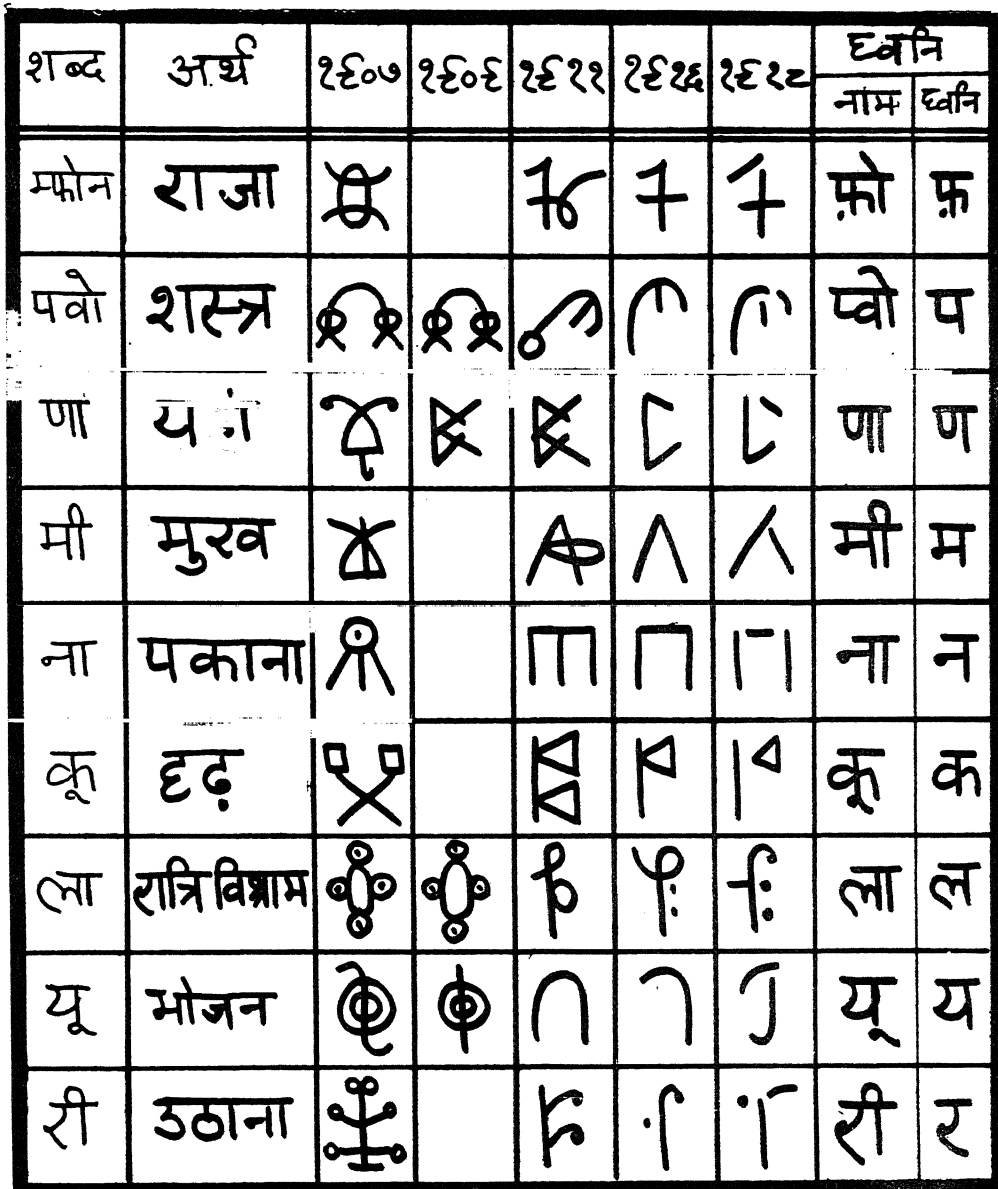 शब्द अर्थ १९०७ १९०९ १९११ १९१६ १९१८ ध्वनि
नाम ध्वनि
म्फोन राजा फ़ो फ़
पवो शस्त्र प्वो प
णां णा ण
मी मुख मी म
ना पकाना ना न
कू दृढ़ कू क
ला रात्रि विश्राम ला ल
यू भोजन यू य
री उठाना री र